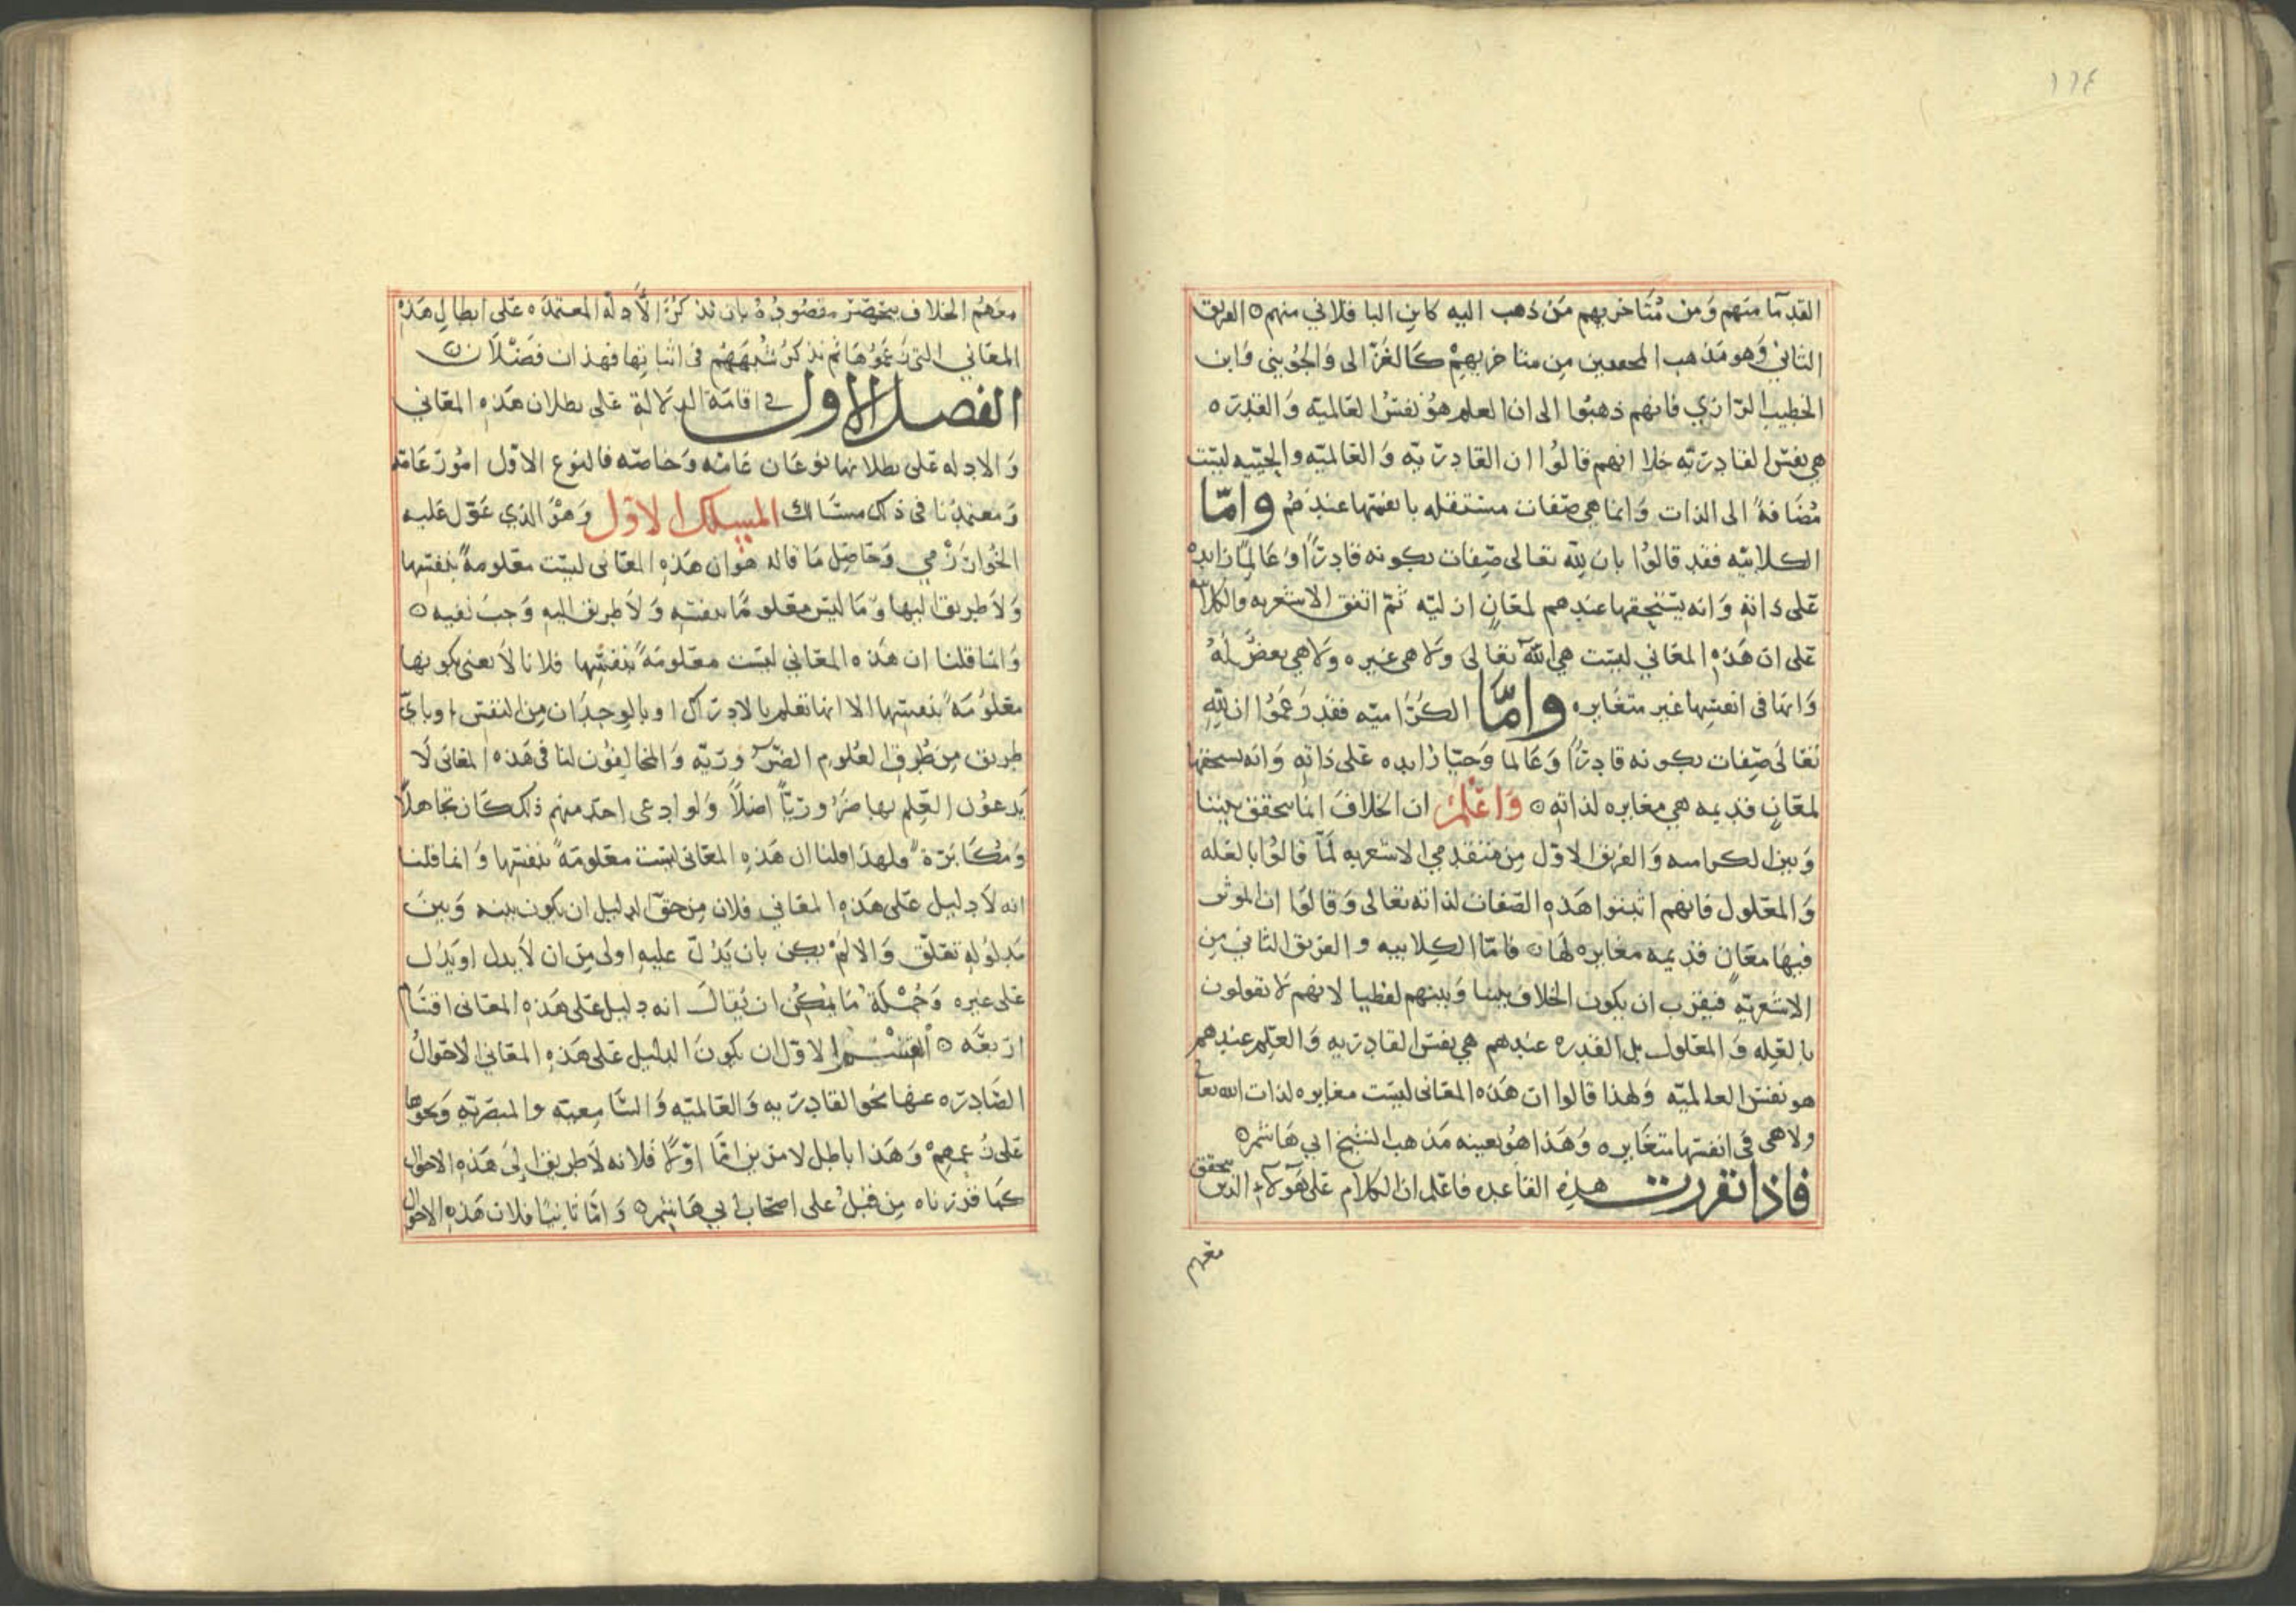 ١٦٤
القدمآ منهم وَمن مُتَاخريهم مَن ذهب اليه كابن الباقلاني منهم ٥ الفريق
الثاني وَهو مَذهب المحققين مِن متاخريهِمْ كَالغَزّالى وَالجُوَيني وَابن
الخطيب الرّازي فانهم ذهبُوا الى ان العلم هوُ نفسُ العَالميّه وَالقدره
هي نفس القادريّه خلا انهم قالُوا ان القادريّه وَالعَالميّه والحيّيه ليسَت
مُضَافةً الى الذات وَانما هي صفات مستقله بانفسها عندهُم وامّا
الكلابيّه فقد قالوُا بان لله تعالى صِفات بكونه قادرًا وَعَالِمًا زايده
عَلى ذاته وَانه يَستحقها عندهم لمعَانٍ ازليّه ثمّ اتفق الاشعريه والكلابيه
عَلى ان هَذه المعَاني ليسَت هي الله تعَالى وَلا هى غيره وَلا هي بعضٌ لهُ
وَانها فى انفسِها غير متغَايره وامَّا الكرّاميّه فقد زعَمُوا ان لله
تعَالىَ صِّفات بكونه قادرًا وَعَالما وَحيّا زايده عَلى ذاته وَانه يسحقها
لمعَانٍ قديمه هي مغايره لذاته ٥ وَاعْلم ان الخلافَ انما يتحقق بيننا
وَبين الكراميه وَالفريق الاوّل مِن متقدمي الاشعريه لمّا قالوُا بالعله
وَالمعَلول فانهم اثبتوا هَذه الصّفات لذاته تعَالى وَقَالوُا ان الموثر
فيهَا معَانٍ قديمه مغايره لهَا ٥ فامّا الكلابيه والفريق الثاني مِن
الاشعَريّه فيقرُب ان يكون الخلاف بيننا وَبينهم لفظيا لانهم لا يقولون
بالعِله وَالمعَلول بل القدره عندهم هي نفس القادريه وَالعلِم عندهم
هو نفس العالميّه وَلهذا قالوا ان هَذه المعَانى ليسَت مغايره لذات الله تعالى
ولا هى فى انفسها متغَايره وَهَذا هوُ بعينه مَذهب الشيخ ابي هَاشم ٥
فاذا تقررت هذِه القاعِده فاعَلم ان الكلام عَلى هَؤلآء الذين يتحقق
معَهم
معَهمُ الخلاف ينحصر مقصُودُهُ بان نذكرُ الأدله المعتمده عَلى ابطالِ هَذه
المعَاني التى زعَمُوهَا ثم نذكرُ شُبهَهُم فى اثباتها فهذان فَصَلان ٥
الفصل الاول في اقامَة الدلالة عَلى بطلان هَذه المعَاني
وَالادله عَلى بطلانها نوعَان عَامّه وَخاصّه فالنوع الاوّل امُور عَامّه
وَمعتمدُنا فى ذلك مسَالك المسلك الاوّل وَهوُ الذي عَوّل عَليه
الخُوارَزْمي وَحَاصِل مَا قاله هوُ ان هَذه المعَانى ليسَت معَلومةً بنفسها
وَلاَ طريق اليها وَمَا ليسَ معَلومًا بنفسه وَلاَ طريق اليه وَجبَ نفيه ٥
وَانما قلنا ان هَذه المعَاني ليسَت معَلومَةً بنفسِها فلانا لاَ نعنى بكونها
معَلوُمَةً بنفسها الا انها تعَلم بالادراك او بالوجدَان مِن النفس او باي
طريق مِن طُرق العُلوم الضّرُوريّه وَالمخالِفوُن لنا فى هَذه المعَانى لاَ
يَدعوُن العِلم بها ضرُوريًّا اصَلاً وَلو ادعى احَد منهم ذلك كَان تجَاهلاً
وَمُكَابَرَةً وَلهذا قلنا ان هَذه المعَانى ليسَت معَلومَةً بنفسها وَانما قلنا
انه لاَ دليل عَلى هَذه المعَاني فلان مِن حَق الدليل ان يكون بينه وَبينَ
مَدلوُله تعَلّق وَالا لَمْ يكن بان يَدُلّ عليه اولى مِن ان لاَ يدل او يَدُل
عَلى غيره وَجُمْلَة مَا يُمكِنُ ان يُقالَ انه دليل عَلى هَذه المعَانى اقسَام
اربعَه ٥ القسم الاوّل ان يكونَ الدليل عَلى هَذه المعَاني الاحَوالُ
الصَّادره عنهَا نحَو القادريه وَالعَالميّه وَالسَّامِعيه والمبصَريّه وَنحوَها
عَلى زعمهِمْ وَهَذا باطل لامرين امَّا اوّلاً فلانه لاَ طريق الىَ هَذه الاحوال
كمَا قرّرناه مِن قبلُ على اصحَاب ابي هَاشم ٥ وَامّا ثانيًا فلان هَذه الاحوال